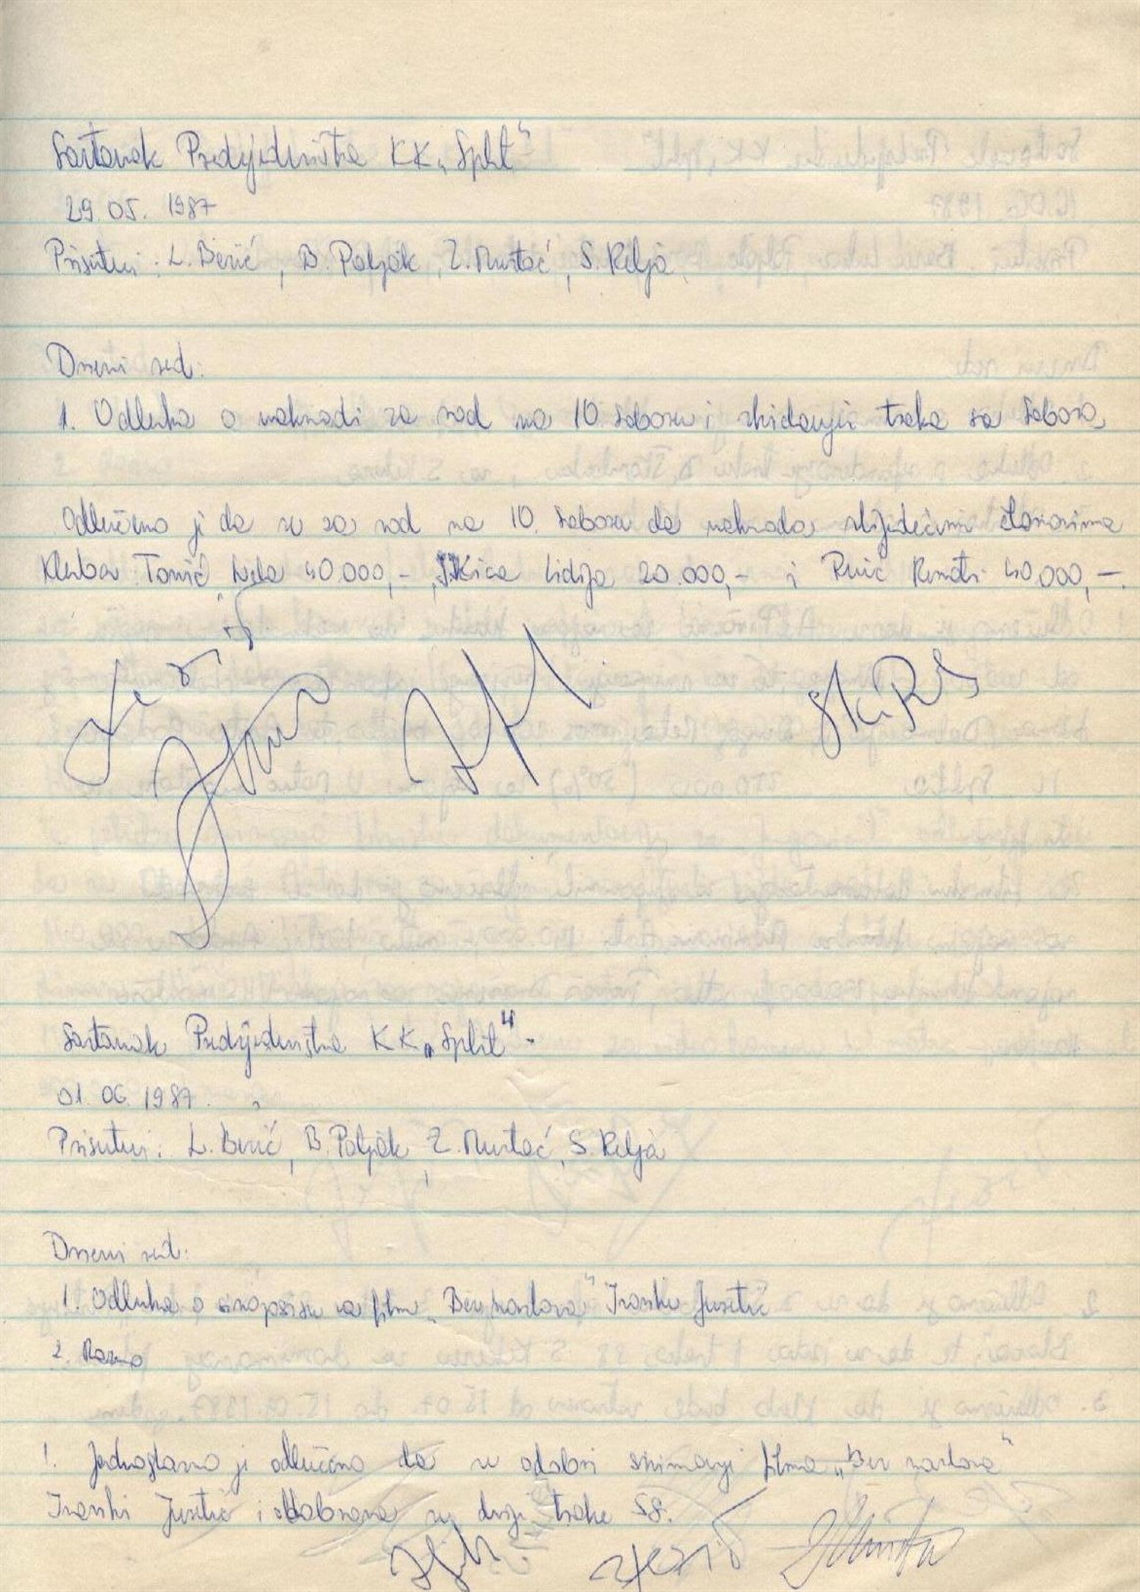 Sastanak Predsjedništva KK „Split"
29.05. 1987
Prisutni: L. Berić, B. Poljak, Z. Mustać, S. Relja
Dnevni red:
1. Odluka o naknadi za rad na 10. saboru i skidanje traka sa Sabora
Odlučeno je da se za rad na 10. saboru da naknada slijedećim članovima
Kluba: Tomić 40.000,- , Kica Lidija 20.000,- i Renato 40.000,-.
Sastanak Predsjedništva KK „Split"
01.06.1987.
Prisutni: L. Berić, B. Poljak, Z. Mustać, S. Relja
Dnevni red:
1. Odluka o sinopsisu za film „Bez naslova" Ivanke Juretić
2. Razno
1. Jednoglasno je odlučeno da se odobri snimanje filma „Bez naslova"
Ivanki Juretić i odobrene su dvije trake S8.